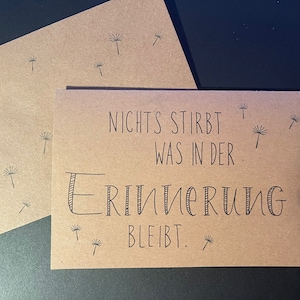 NICHTS STIRBT
WAS IN DER
ERINNERUNG
BLEIBT.